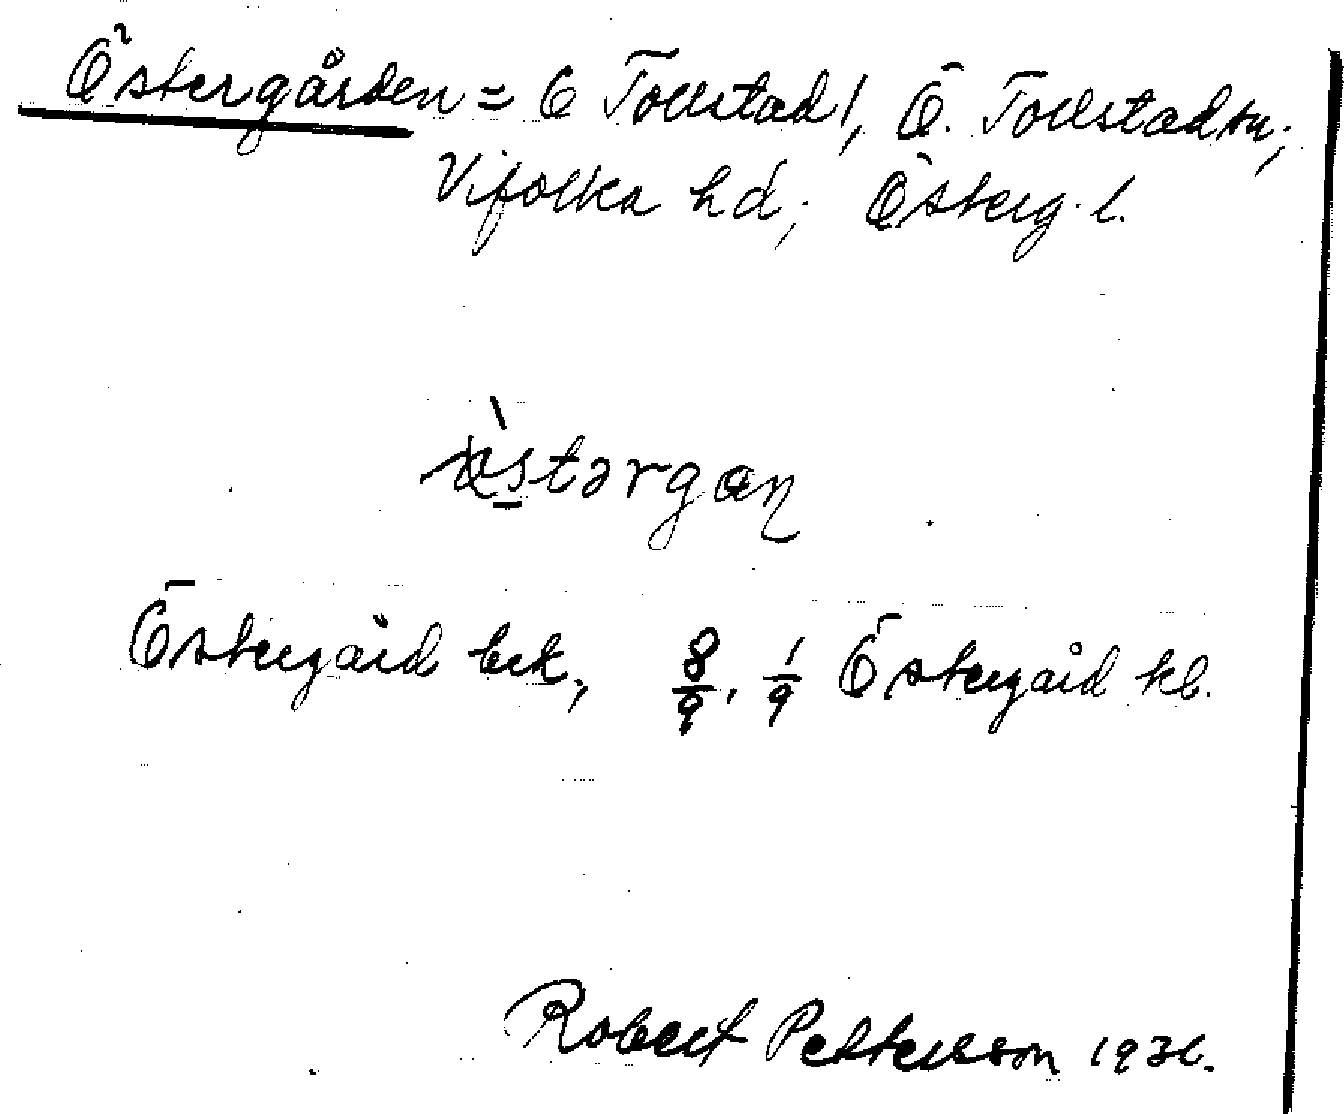 Östergården = Ö Tollstad 1, Ö. Tollstad sn;
Vifolka hd; Österg. l.
östərgan
Östergård bek, 8/9, 1/9 Östergård kb.
Robert Pettersson 1931.